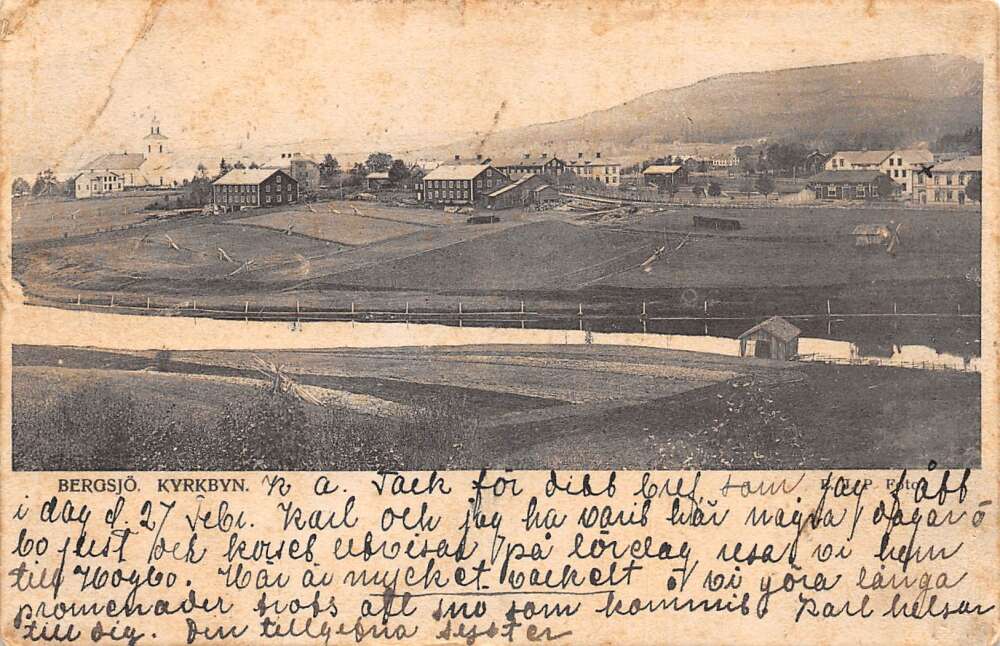 BERGSJÖ. KYRKBYN. K A. Tack för ditt bref som jag fått
i dag d. 27 Febr. Karl och jag ha varit här några dagar o
bo just och korset på lördag resa vi hem
till Högbo. Här är mycket vackert o vi göra långa
promenader trots all snö som kommit Karl helsar
till dig. Din tillgifna syster